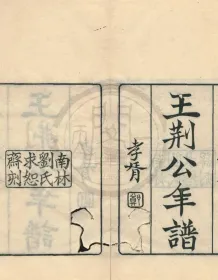 王荆公年谱
孝胥
南林
劉氏
求恕
齋刻